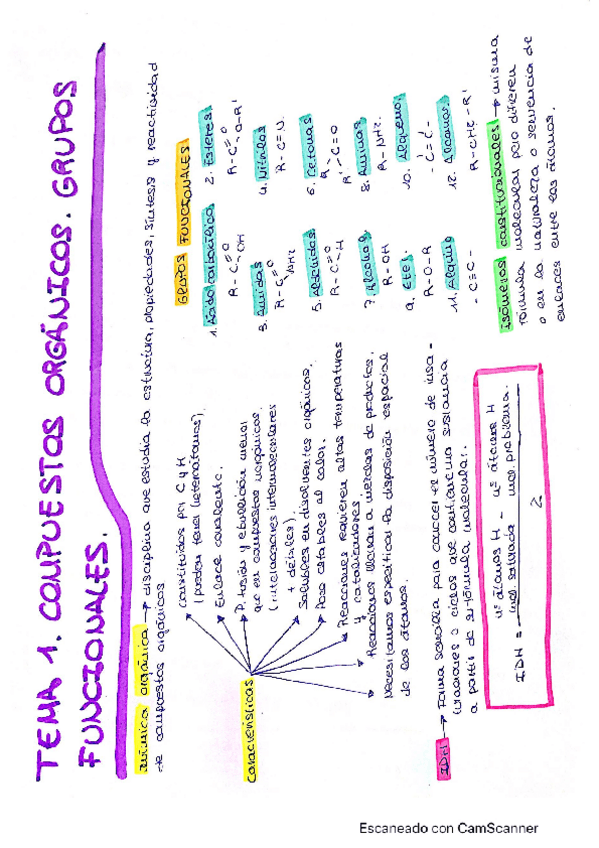 TEMA 1. COMPUESTOS ORGÁNICOS. GRUPOS
FUNCIONALES.
Química orgánica → disciplina que estudia la estructura, propiedades, síntesis y reactividad
de compuestos orgánicos
Características
Constituidos por C y H
(pueden tener heteroátomos).
Enlace covalente.
P. fusión y ebullición menor
que en compuestos inorgánicos.
(interacciones intermoleculares
+ débiles).
Solubles en disolventes orgánicos.
Poco estables al calor.
Reacciones requieren altas temperaturas
y catalizadores.
Reacciones llevan a mezclas de productos.
Necesitamos especificar la disposición espacial
de los átomos.
GRUPOS FUNCIONALES
1. Ácido carboxílico
R-C=O
OH
2. Ésteres
R-C=O
O-R'
3. Amidas
R-C=O
NH2
4. Nitrilos
R-C≡N.
5. Aldehídos
R-C=O
H
6. Cetonas
R
R'-C=O
7. Alcohol
R-OH
8. Aminas
R-NH2.
9. Éter
R-O-R
10. Alqueno
-C=C-
11. Alquino
-C≡C-
12. Alcanos
R-CH2-R'
IDH → Forma sencilla para conocer el número de insa-
turaciones o ciclos que contiene una sustancia
a partir de su fórmula molecular.
IDH = nº átomos H mol. saturada - nº átomos H mol. problema.
2
isómeros constitucionales → misma
fórmula molecular pero difieren
o en la naturaleza o secuencia de
enlaces entre los átomos.
Escaneado con CamScanner